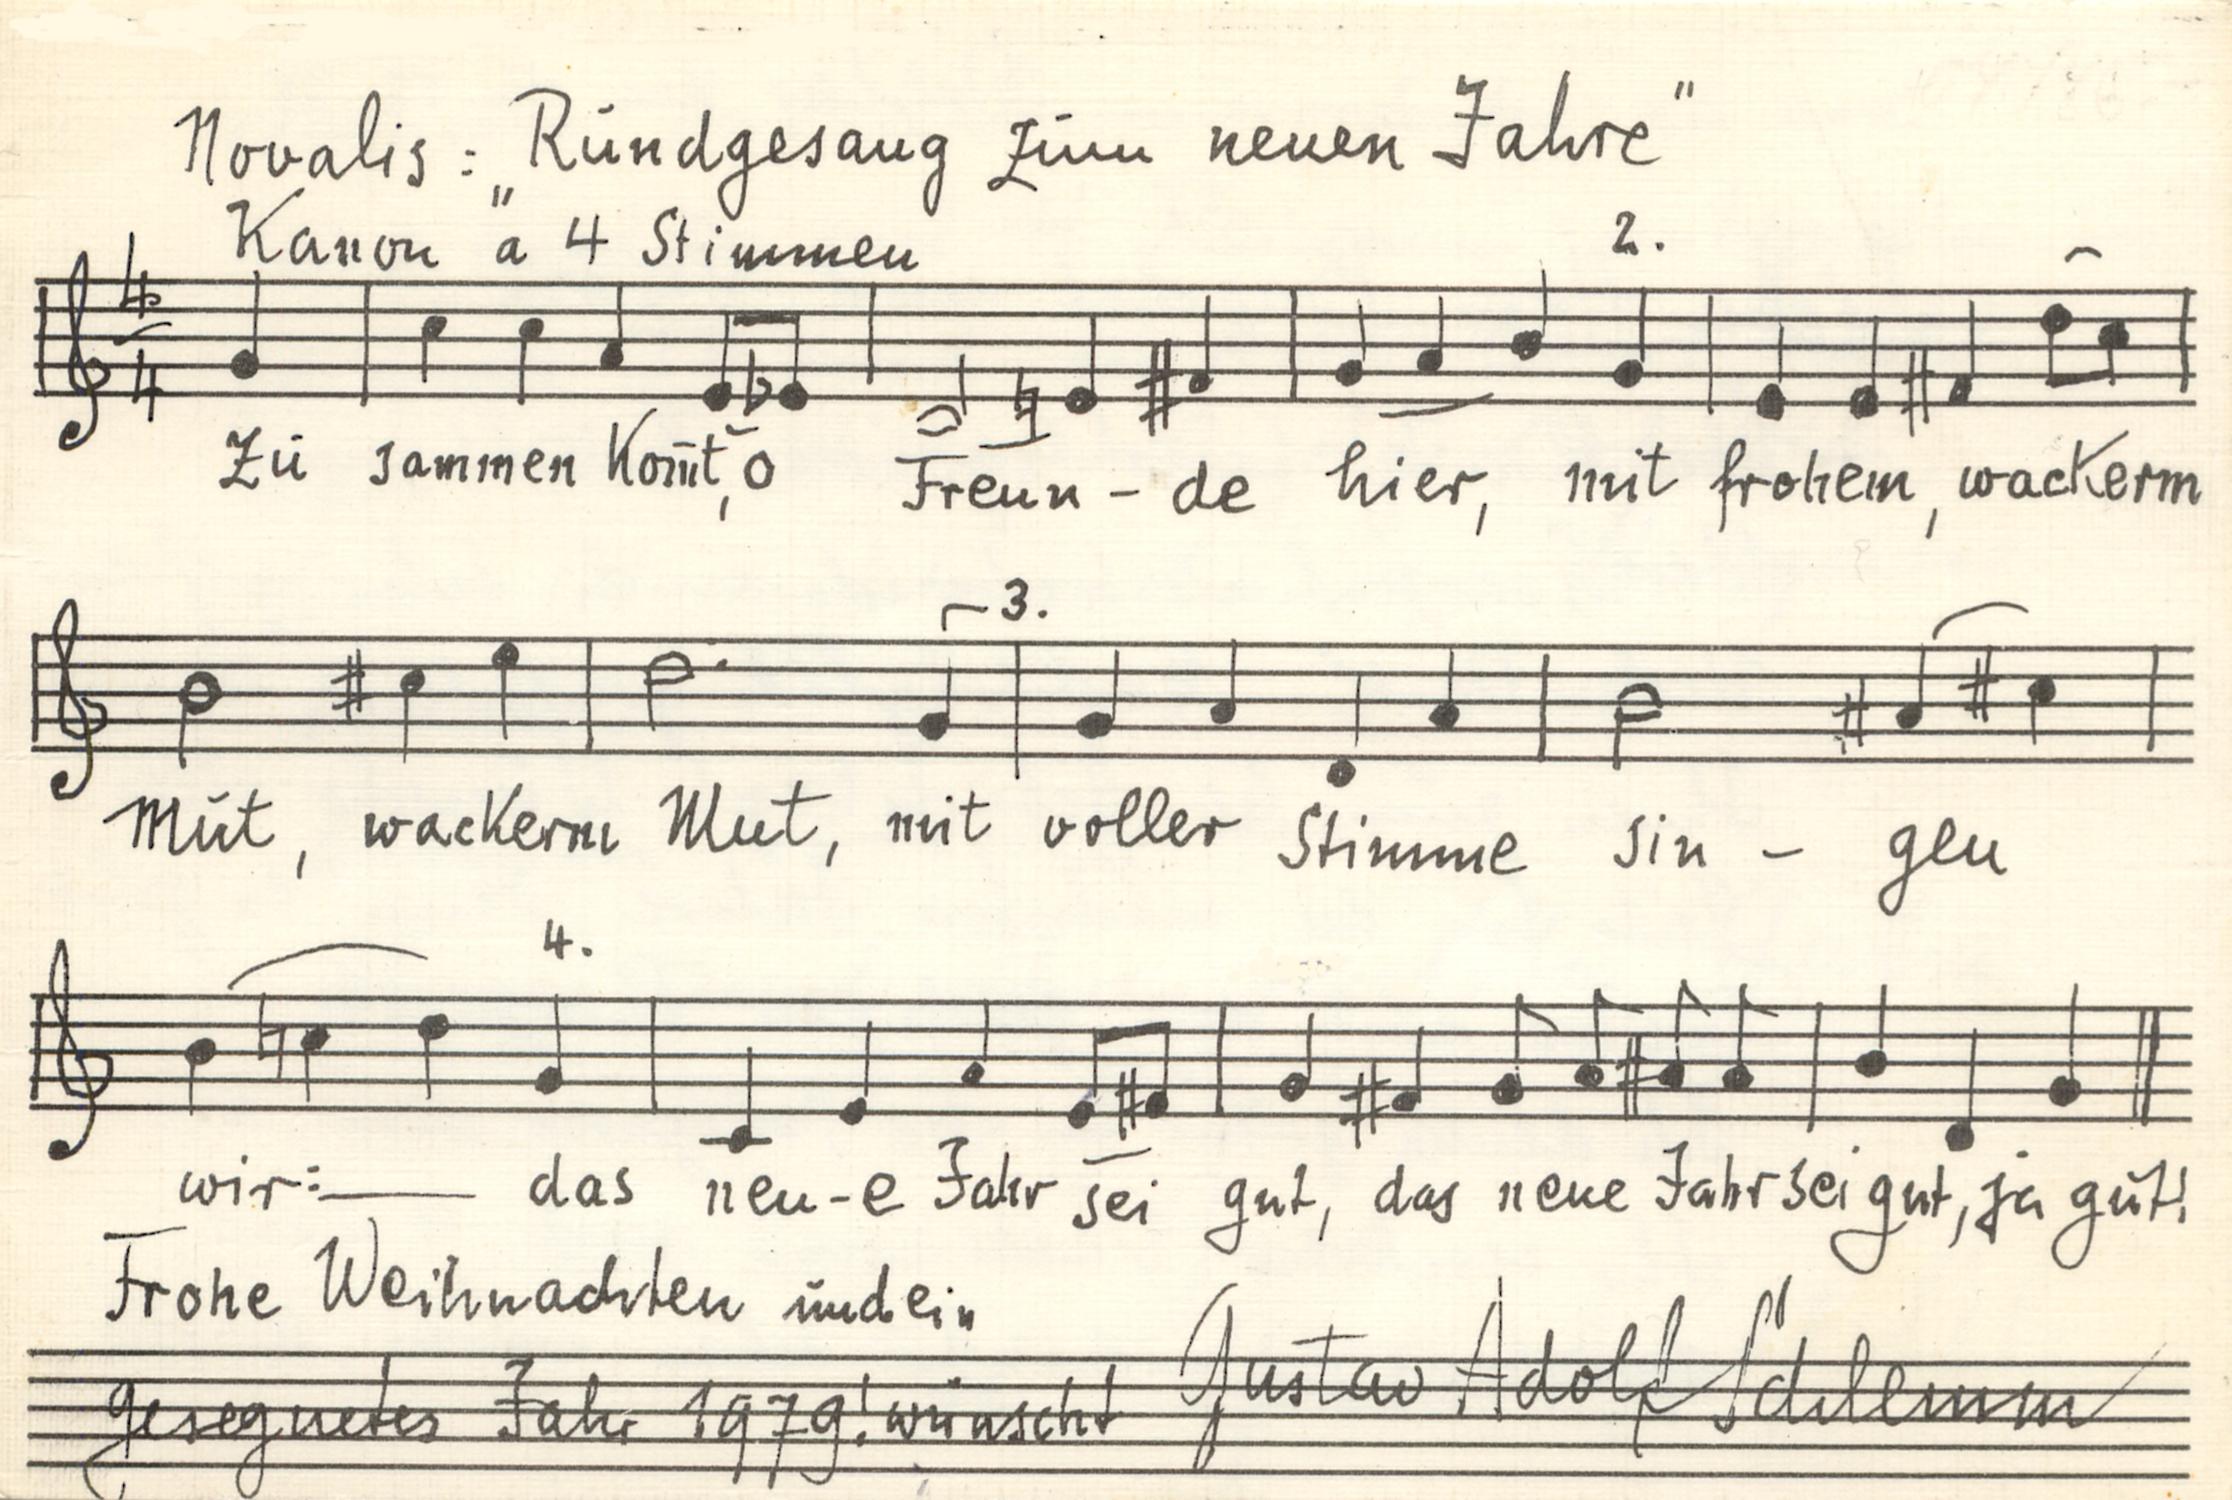 Novalis: „Rundgesang zum neuen Jahre"
Kanon a 4 Stimmen
2.
4/4
Zu sammen kom̄t, o Freun - de hier, mit frohem, wackerm
3.
Mut, wackerm Mut, mit voller Stimme sin - gen
4.
wir: das neu-e Jahr sei gut, das neue Jahr sei gut, ja gut!
Frohe Weihnachten und ein
gesegnetes Jahr 1979! wünscht Gustav Adolf Schlemm